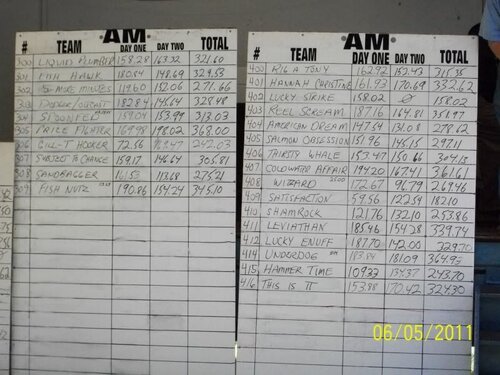 AM
# TEAM DAY ONE DAY TWO TOTAL
300 LIQUID PLUMBER 158.28 163.32 321.60
301 FISH HAWK 180.84 148.69 329.53
302 MORE MINUTES 119.60 152.06 271.66
303 182.84 145.64 328.48
304 159.04 153.99 313.03
305 PRICE FIGHTER 169.98 198.02 368.00
306 GILL-T HOOKER 72.56 242.03
307 SUBJECT TO CHANGE 159.17 146.64 305.81
308 SANDBAGGER 113.68 275.21
309 FISH NUTZ 190.86 154.24 345.10
AM
# TEAM DAY ONE DAY TWO TOTAL
400 RIG A TONY 162.92 152.43 315.35
401 HANNAH CHRISTINE 161.93 170.69 332.62
402 LUCKY STRIKE 158.02 0 158.02
403 REEL SCREAM 187.16 164.81 351.97
404 AMERICAN DREAM 147.54 131.08 278.62
405 SALMON OBSESSION 151.96 145.15 297.11
406 THIRSTY WHALE 153.47 150.66 304.13
407 COLDWATER AFFAIR 194.20 167.41 361.61
408 WIZARD 172.67 96.79 269.46
409 SATISFACTION 59.56 122.54 182.10
410 SHAMROCK 121.76 132.10 253.86
411 LEVIATHAN 185.46 154.28 339.74
412 LUCKY ENUFF 187.70 142.00 329.70
414 UNDERDOG 183.84 181.09 364.93
415 HAMMER TIME 109.33 134.37 243.70
416 THIS IS IT 153.88 170.42 324.30
06/05/2011